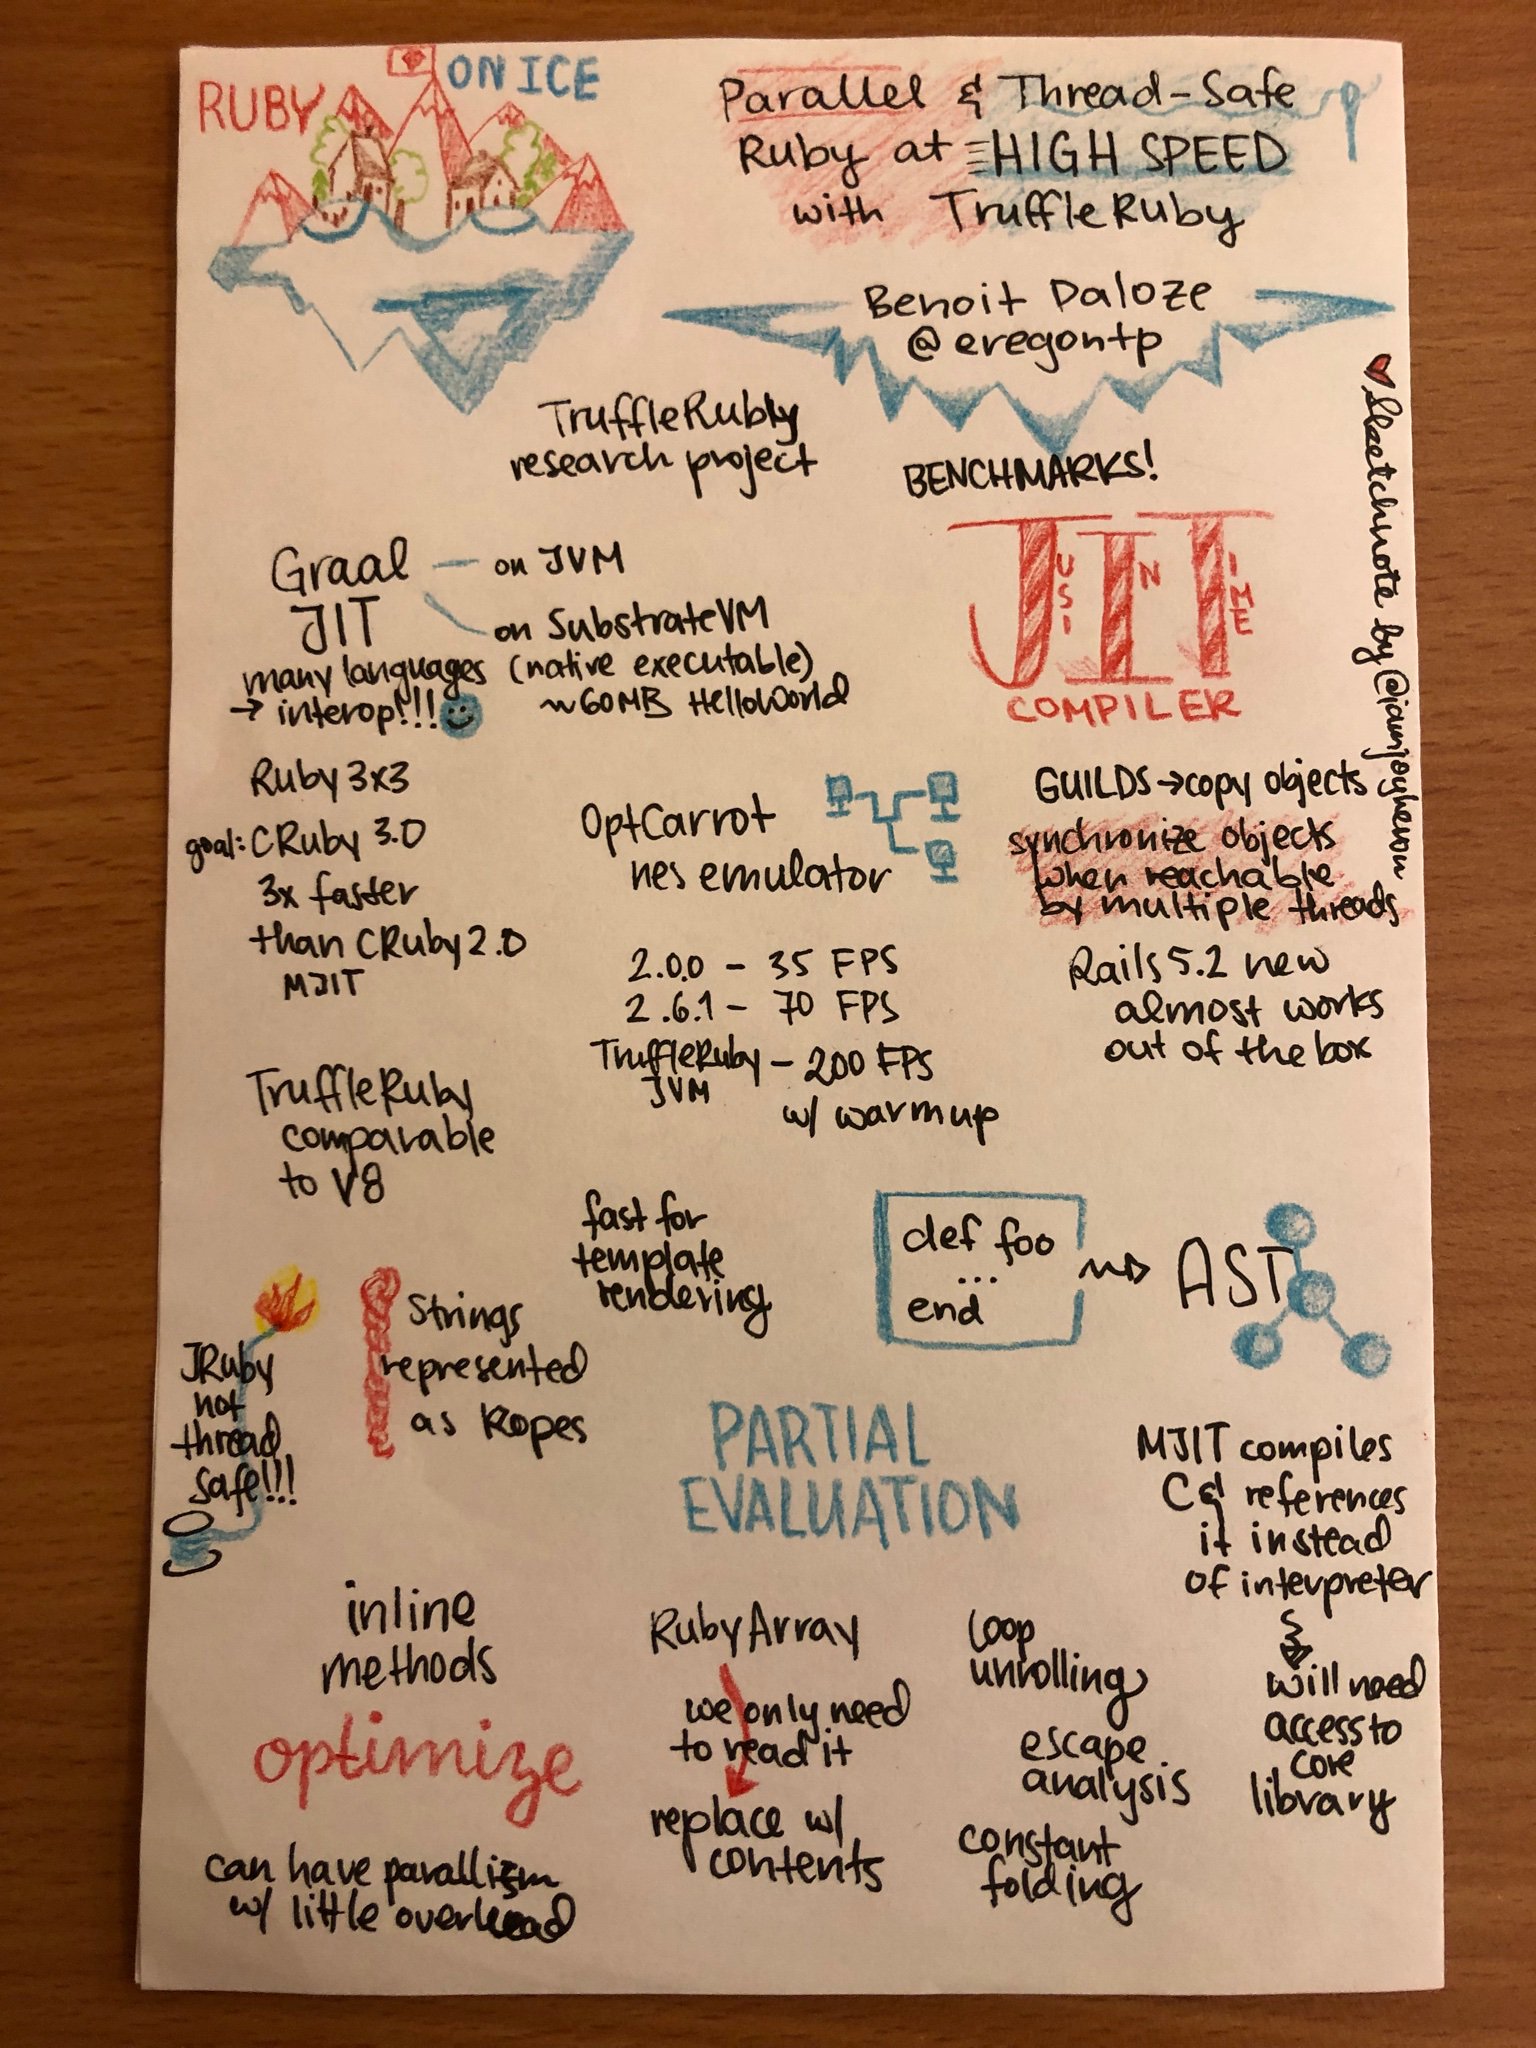 RUBY ON ICE
Parallel & Thread-Safe
Ruby at HIGH SPEED
with TruffleRuby
Benoit Daloze
@eregontp
TruffleRuby
research project
BENCHMARKS!
JUST IN TIME
COMPILER
Graal
JIT
— on JVM
on SubstrateVM
(native executable)
~60MB HelloWorld
many languages
→ interop!!!
Ruby 3x3
goal: CRuby 3.0
3x faster
than CRuby 2.0
MJIT
OptCarrot
nes emulator
2.0.0 - 35 FPS
2.6.1 - 70 FPS
TruffleRuby - 200 FPS
JVM
w/ warmup
GUILDS → copy objects
synchronize objects
when reachable
by multiple threads
Rails 5.2 new
almost works
out of the box
TruffleRuby
comparable
to V8
fast for
template
rendering
def foo
...
end
→ AST
JRuby
not
thread
safe!!!
Strings
represented
as Ropes
PARTIAL
EVALUATION
MJIT compiles
C & references
it instead
of interpreter
will need
access to
core
library
inline
methods
optimize
can have parallism
w/ little overhead
RubyArray
we only need
to read it
replace w/
contents
loop
unrolling
escape
analysis
constant
folding
sketchnote by @iamjoyheron